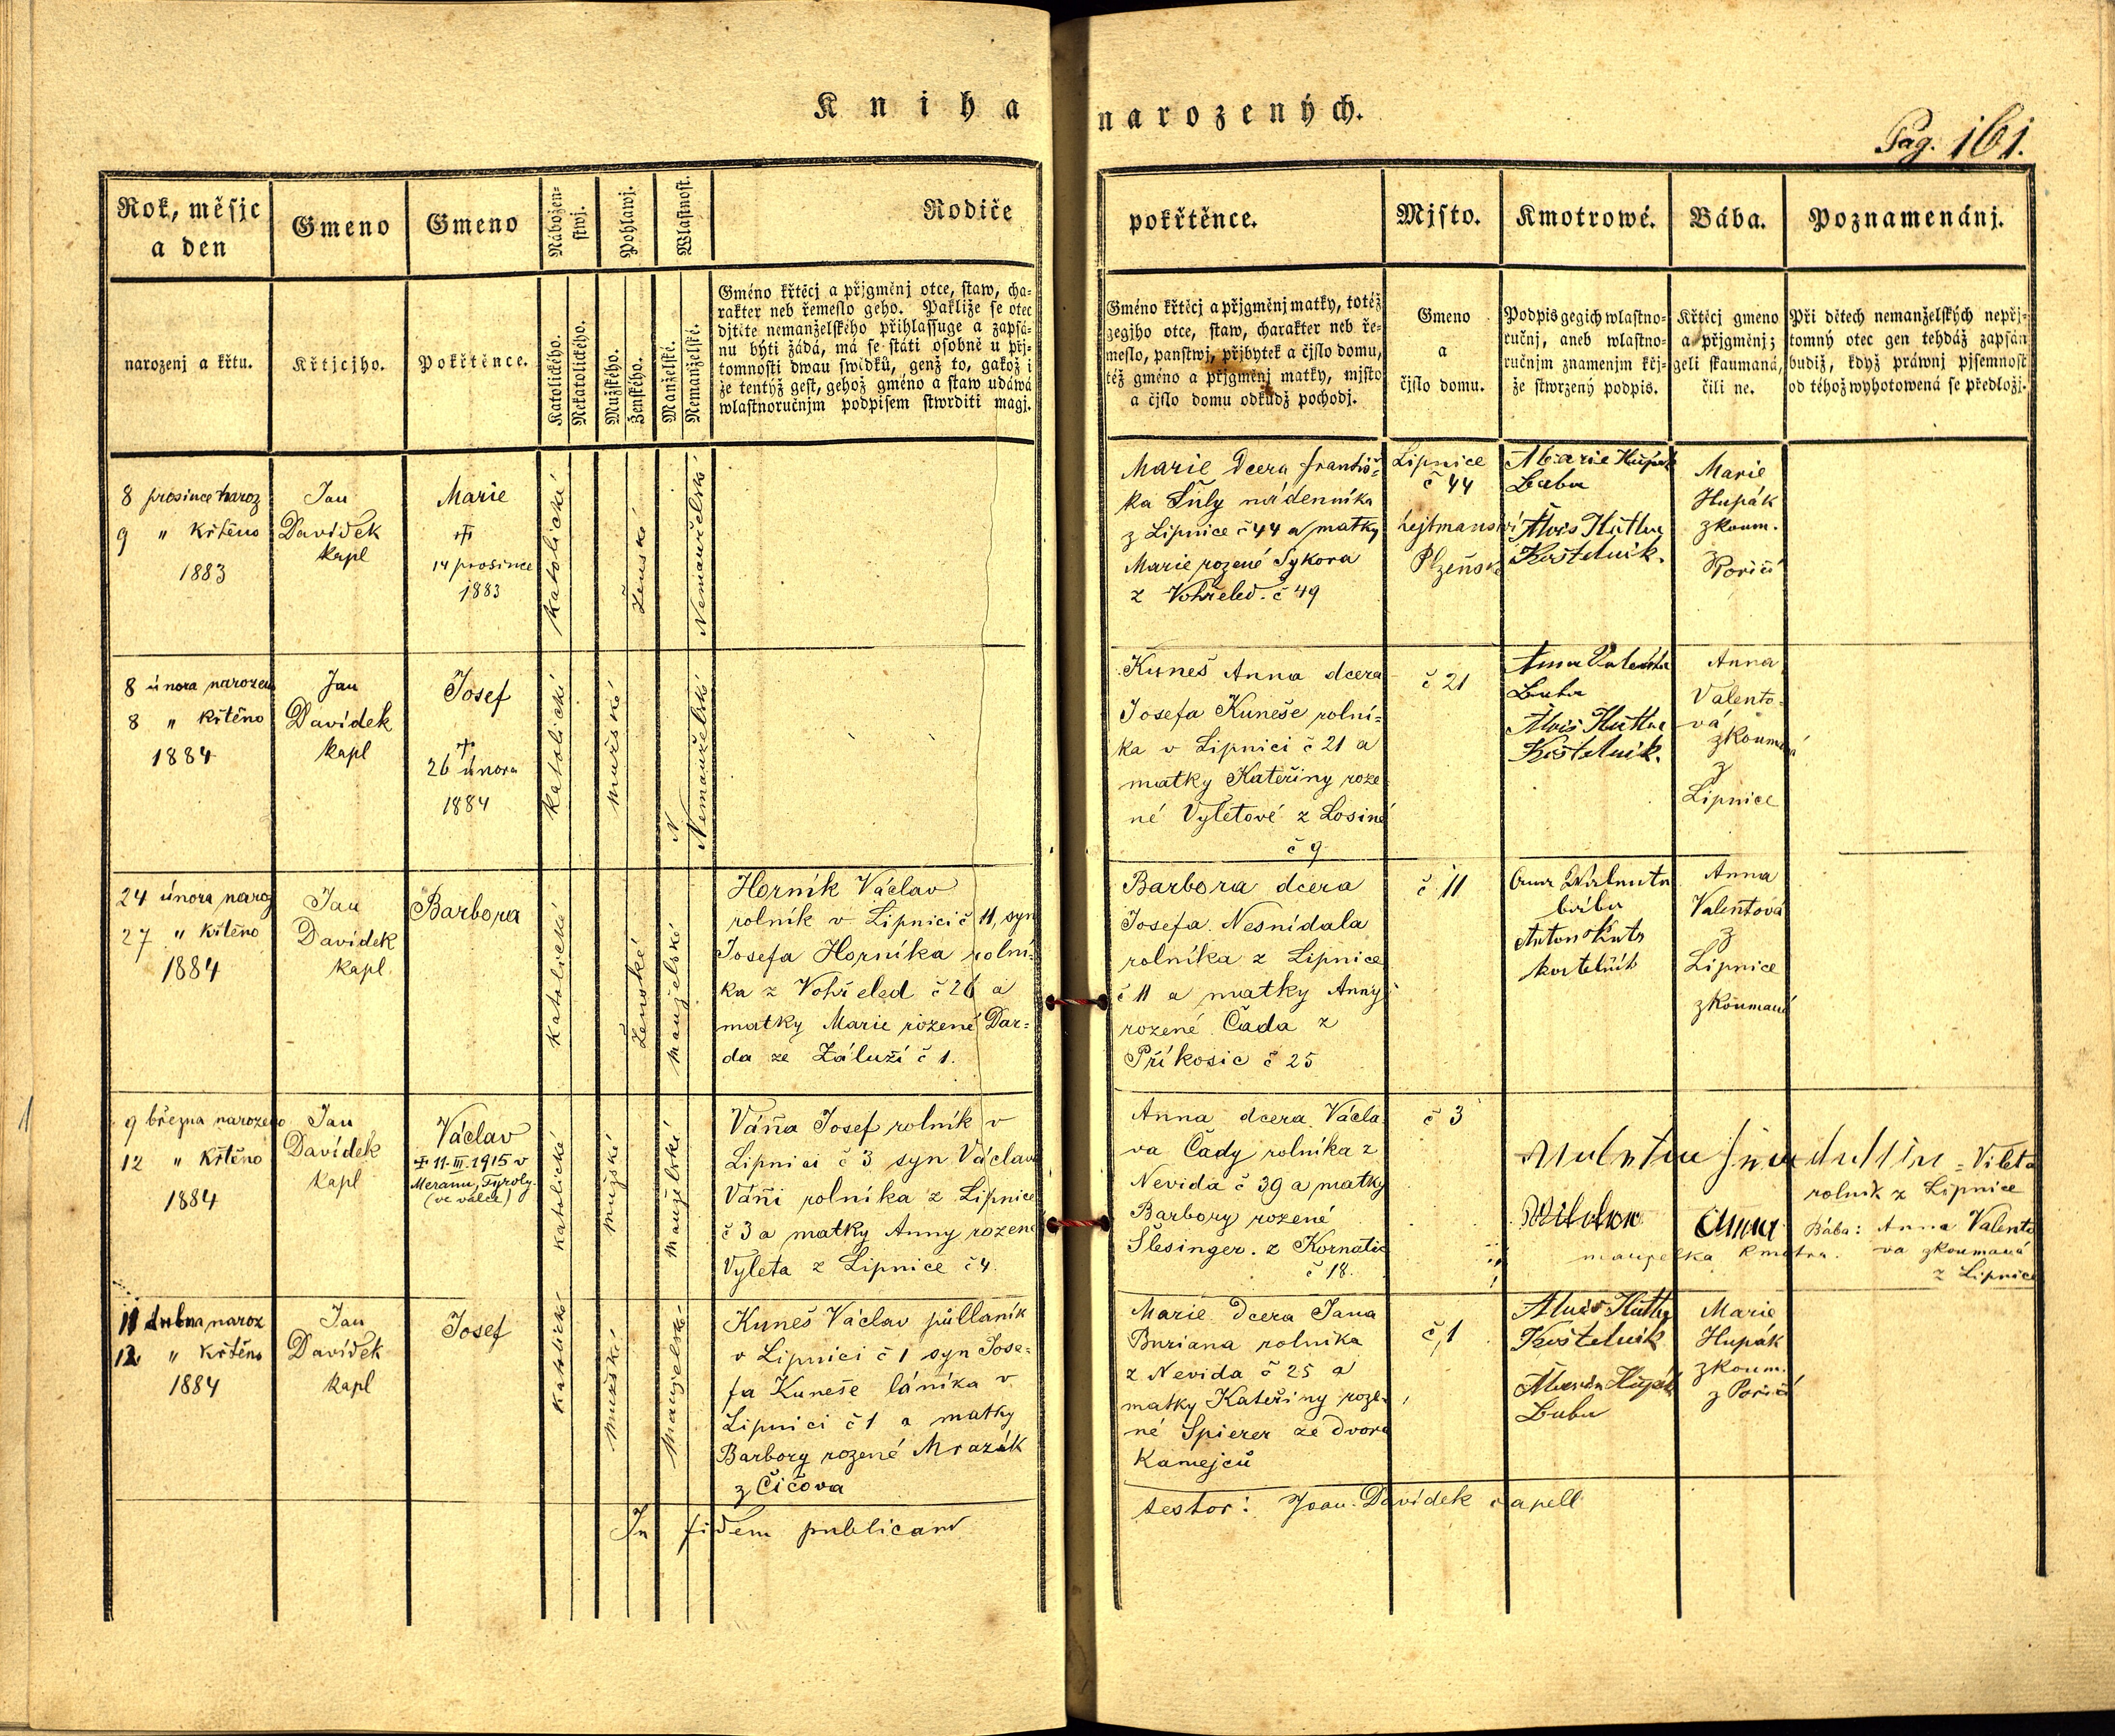 Kniha narozených.
Pag. 161.
Rok, měsjc
a den
Gmeno
Gmeno
Nábožen=
stwj.
Pohlawj.
Wlastnost.
Rodiče
pokřtěnce.
Mjsto.
Kmotrowé.
Bába.
Poznamenánj.
narozenj a křtu.
Křtjcjho.
Pokřtěnce.
Katolického.
Nekatolického.
Mužského.
Ženského.
Manželské.
Nemanželské.
Gméno křtěcj a přjgměnj otce, staw, cha=
rakter neb řemeslo geho. Pakliže se otec
djtěte nemanželského přihlassuge a zapsá=
nu býti žádá, má se státi osobně u přj=
tomnosti dwau swědků, genž to, gakož i
že tentýž gest, gehož gméno a staw udáwá
wlastnoručnjm podpisem stwrditi magj.
Gméno křtěcj a přjgměnj matky, totéž
gegjho otce, staw, charakter neb ře=
meslo, panstwj, přjbytek a čjslo domu,
též gméno a přjgměnj matky, mjsto
a čjslo domu odkudž pochodj.
Gmeno
a
čjslo domu.
Podpis gegich wlastno=
ručnj, aneb wlastno=
ručnjm znamenjm křj=
že stwrzený podpis.
Křtěcj gmeno
a přjgměnj;
geli skaumaná,
čili ne.
Při dětech nemanželských nepřj=
tomný otec gen tehdáž zapsán
budiž, když práwnj pjsemnost
od téhož wyhotowená se předložj.
8 prosince naroz
9 " křtěno
1883
Jan
Davídek
kapl
Marie
+
14 prosince
1883
katolické
Ženské
Nemanželské
Marie dcera Františ=
ka Šůly nádenníka
z Lipnice č 44 a matky
Marie rozené Sykora
z Vohřeled. č 49
Lipnice
č 44
hejtmanství
Plzeňské
Marie Hupák
Baba
Alois Kutka
Kostelník.
Marie
Hupák
zkoum.
z
Poříčí
8 února narozen
8 " křtěno
1884
Jan
Davídek
kapl
Josef
+
26 února
1884
katolické
mužské
N
Nemanželské
Kuneš Anna dcera
Josefa Kuneše rolní=
ka v Lipnici č 21 a
matky Kateřiny roze
né Vyletové z Losiné
č 9
č 21
Anna Valenta
Baba
Alois Kutka
Kostelník.
Anna
Valento=
vá
zkoumaná
z
Lipnice
24 února naroz
27 " křtěno
1884
Jan
Davídek
kapl
Barbora
katolické
Ženské
manželské
Horník Václav
rolník v Lipnici č 11, syn
Josefa Horníka rolní=
ka z Vohřeled č 26 a
matky Marie rozené Dar=
da ze Záluží č 1.
Barbora dcera
Josefa Nesnídala
rolníka z Lipnice
č 11 a matky Anny
rozené Čada z
Příkosic č 25
č 11
bába
Anton
kostelník
Anna
Valentová
z
Lipnice
zkoumaná
9 března narozeno
12 " křtěno
1884
Jan
Davídek
kapl
Václav
+ 11.III.1915 v
Meranu, Tyroly.
(ve válce)
katolické
mužské
manželské
Váňa Josef rolník v
Lipnici č 3 syn Václava
Váňi rolníka z Lipnice
č 3 a matky Anny rozené
Vyleta z Lipnice č 4.
Anna dcera Václa
va Čady rolníka z
Nevida č 39 a matky
Barbory rozené
Šlesinger. z Kornatic
č 18.
č 3
= Vileta
rolník z Lipnice
Anna
manželka kmotra.
Bába: Anna Valento
va zkoumaná
z Lipnice
11 dubna naroz
12 " křtěno
1884
Jan
Davídek
kapl
Josef
katolické
mužské
manželské
Kuneš Václav půllaník
v Lipnici č 1 syn Jose=
fa Kuneše láníka v
Lipnici č 1 a matky
Barbory rozené Mrazák
z Čičova
Marie dcera Jana
Buriana rolníka
z Nevida č 25 a
matky Kateřiny roze=
né Spierer ze dvora
Kamejců
č 1
Alois Kutka
Kostelník
Marie Hupák
Baba
Marie
Hupák
zkoum.
z Poříčí
In fidem publicam testor: Joan. Davídek capell